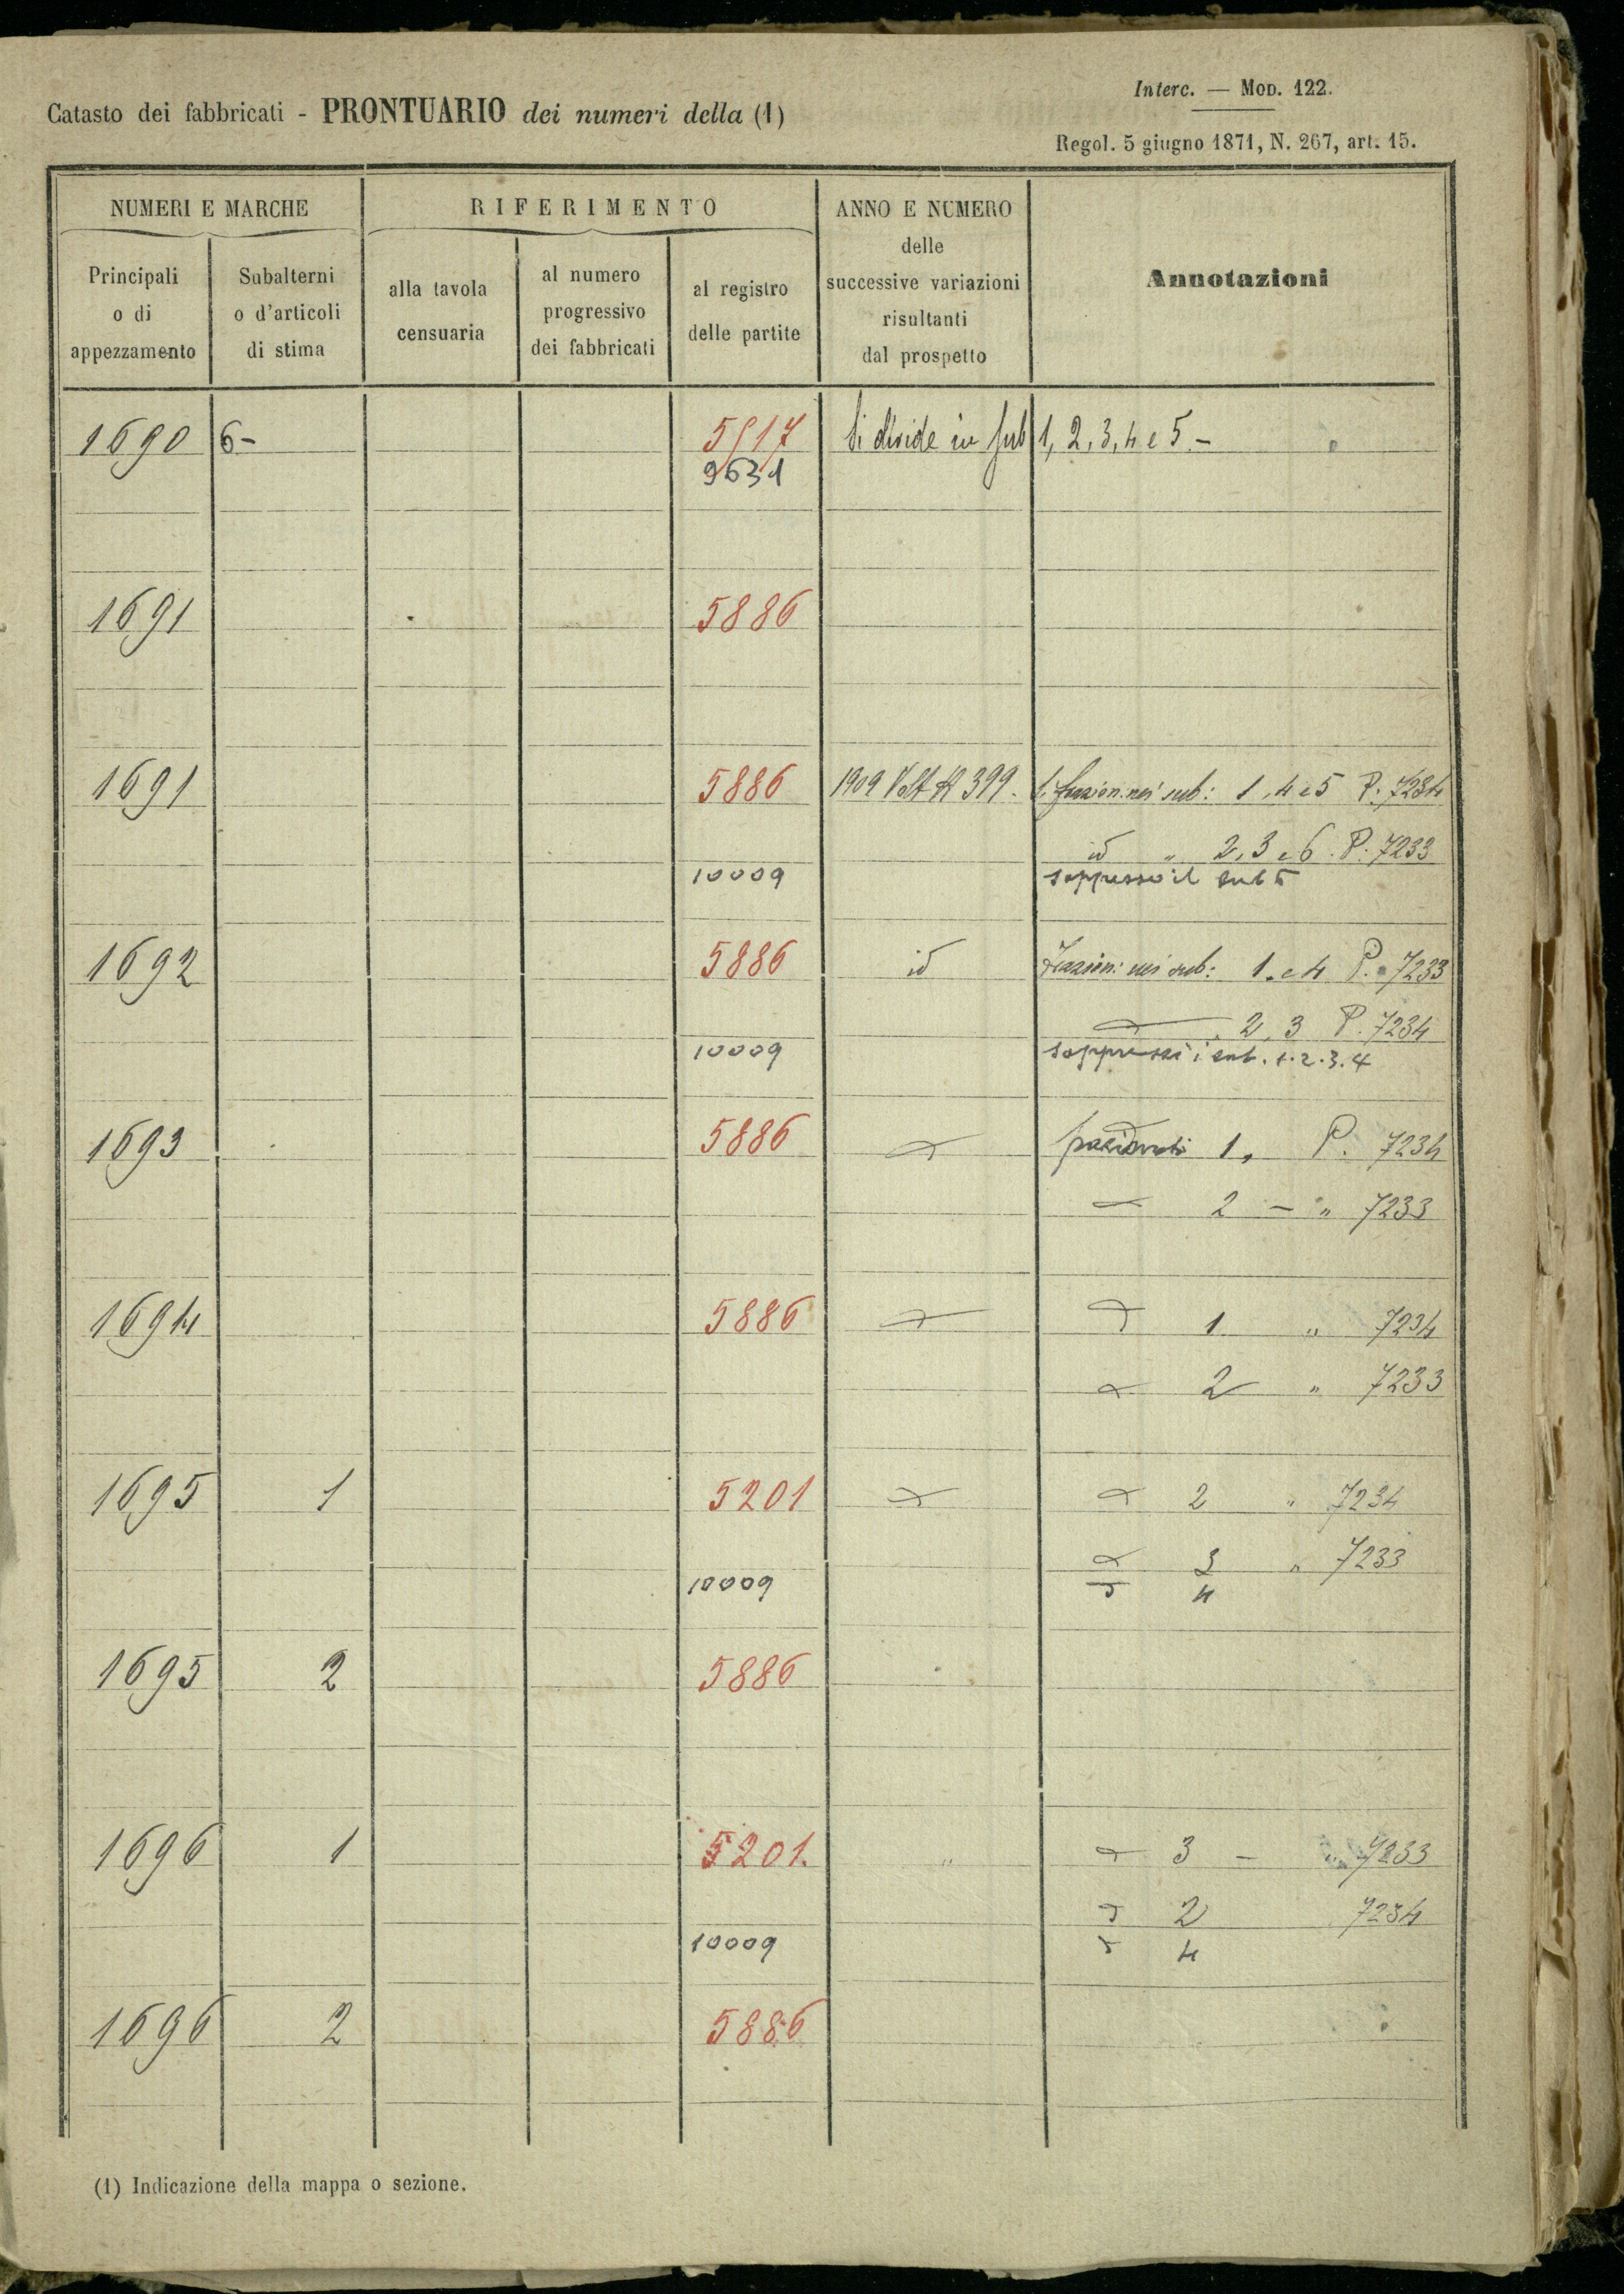 Interc. — Mod. 122.
Catasto dei fabbricati - PRONTUARIO dei numeri della (1)
Regol. 5 giugno 1871, N. 267, art. 15.
NUMERI E MARCHE
Principali o di appezzamento
Subalterni o d'articoli di stima
RIFERIMENTO
alla tavola censuaria
al numero progressivo dei fabbricati
al registro delle partite
ANNO E NUMERO delle successive variazioni risultanti dal prospetto
Annotazioni
1690 6- 5917 Si divide in sub 1, 2, 3, 4 e 5 -
9631
1691 5886
1691 5886 1909 399. nei sub: 1, 4 e 5 P. 7234
id " 2, 3 e 6. P. 7233
10009 soppresso il sub 5
1692 5886 id Frazion: nei sub: 1. e 4 P. 7233
2, 3 P. 7234
10009 soppressi i sub. 1.2.3.4
1693 5886 1, P. 7234
2 - " 7233
1694 5886 1 " 7234
2 " 7233
1695 1 5201 2 " 7234
3 " 7233
10009 4
1695 2 5886
1696 1 5201. " 3 - " 7233
2 7234
10009 4
1696 2 5886
(1) Indicazione della mappa o sezione.